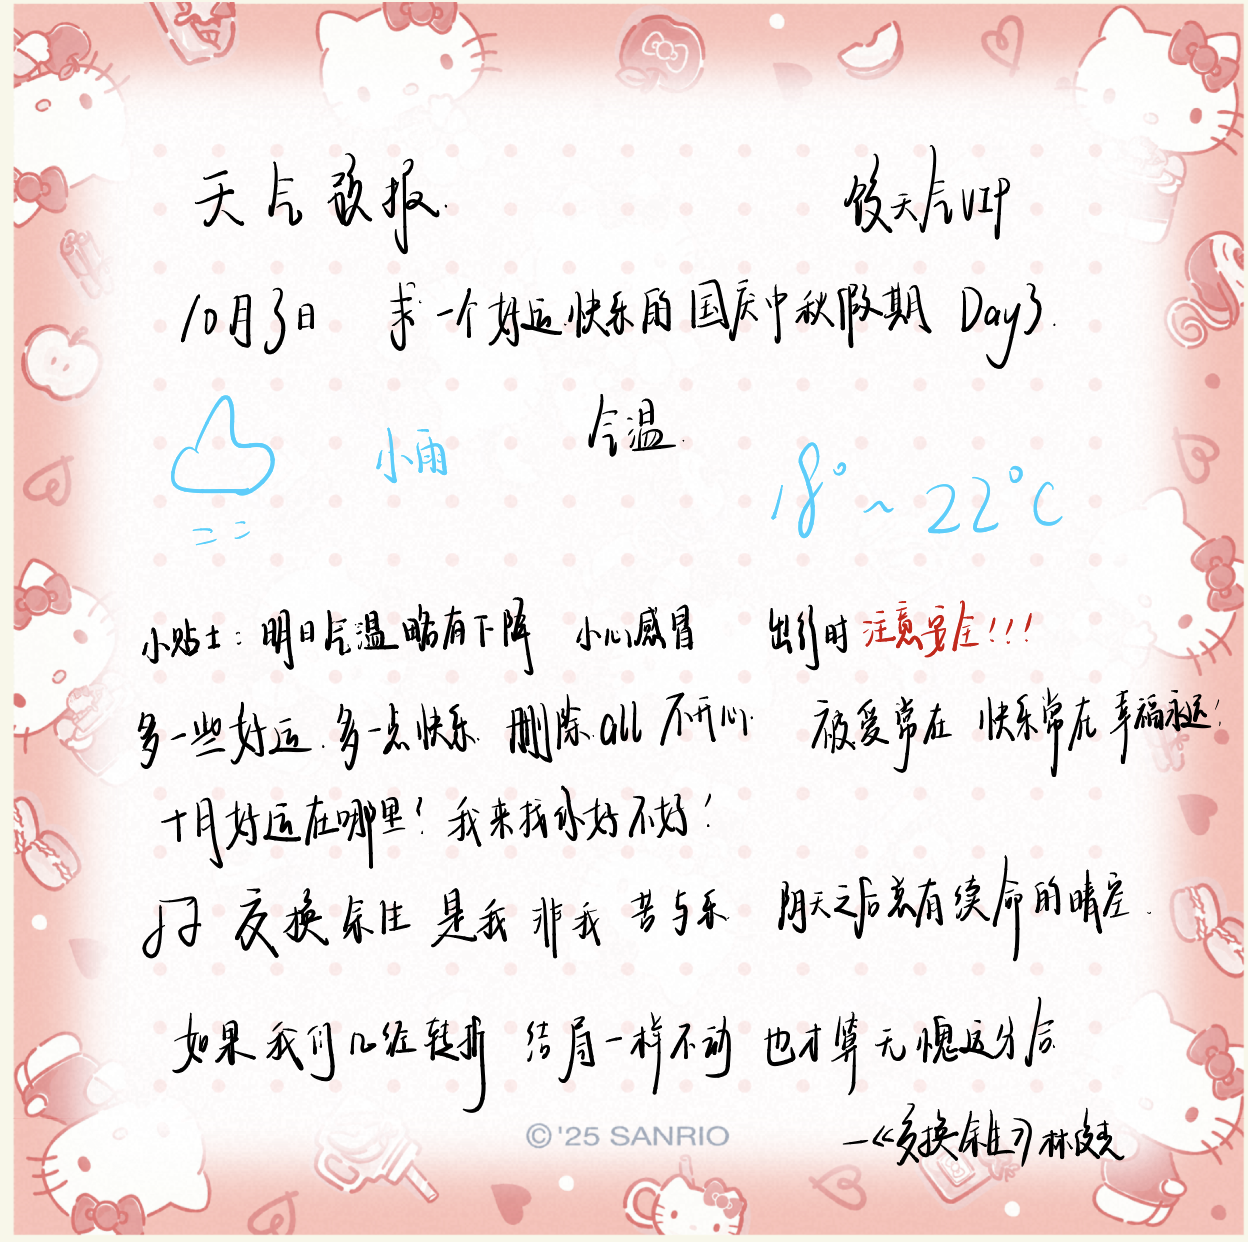 天气预报. 饺天气VIP
10月3日 求一个好运快乐的国庆中秋假期 Day3.
气温.
小雨 18°~22°C
小贴士:明日气温略有下降 小心感冒 出行时注意安全!!!
多一些好运.多一点快乐.删除all不开心. 被爱常在 快乐常在 幸福永远!
十月好运在哪里?我来找你好不好!
交换余生 是我 非我 苦与乐 阴天之后总有续命的晴空.
如果我们几经转折 结局一样不动 也才算无愧这分合
—《交换余生》林俊杰
© '25 SANRIO